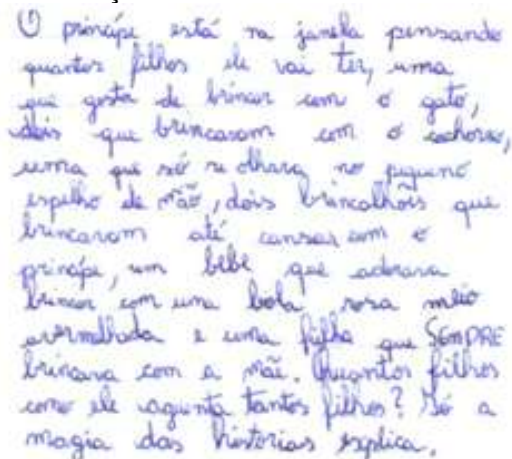 O prinápe está na janela pensando
quantos filhos ele vai ter, uma
que gosta de brincar com o gato,
dois que brincavam com o cachorro,
uma que só se olhava no pequeno
espelho de mão, dois brincalhões que
brincavam até cansar com o
prinápe, um bebê que adorava
brincar com uma bola rosa meio
avermelhada e uma filha que SEMPRE
brincava com a mãe. Quantos filhos
como ele aguenta tantos filhos? Só a
magia das histórias explica.